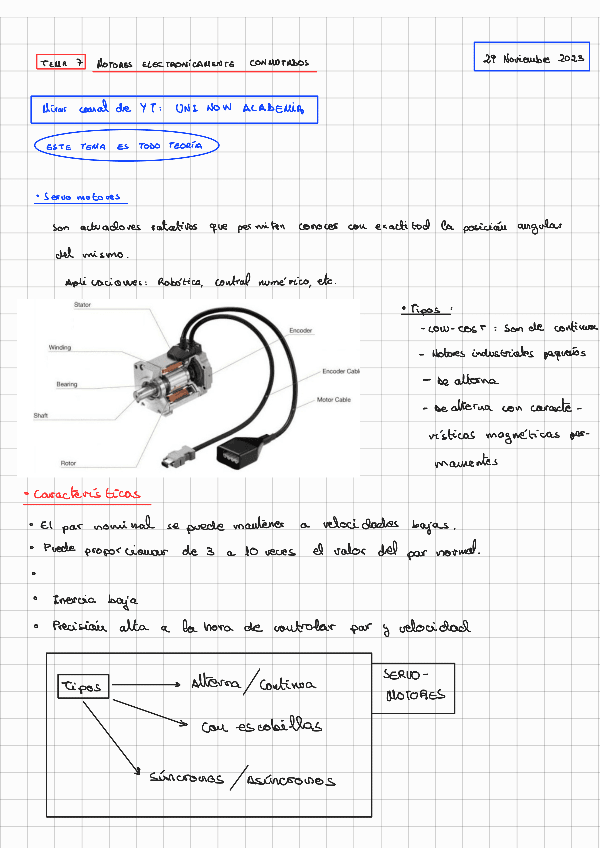 TEMA 7 MOTORES ELECTRONICAMENTE CONMUTADOS
29 Noviembre 2023
Mirar canal de YT: UNI NOW ACADEMIA
ESTE TEMA ES TODO TEORÍA
• Servo motores
Son actuadores rotativos que permiten conocer con exactitud la posición angular
del mismo.
Aplicaciones: Robótica, control numérico, etc.
Stator
Winding
Bearing
Shaft
Rotor
Encoder
Encoder Cabl
Motor Cable
• Tipos:
- LOW-COST: Son de continua
- Motores industriales pequeños
- De alterna
- De alterna con caracte-
rísticas magnéticas per-
manentes
• Características
• El par nominal se puede mantener a velocidades bajas.
• Puede proporcionar de 3 a 10 veces el valor del par normal.
•
• Inercia baja
• Precisión alta a la hora de controlar par y velocidad
Tipos
Alterna/Continua
Con escobillas
Síncronos/Asíncronos
SERVO-
MOTORES